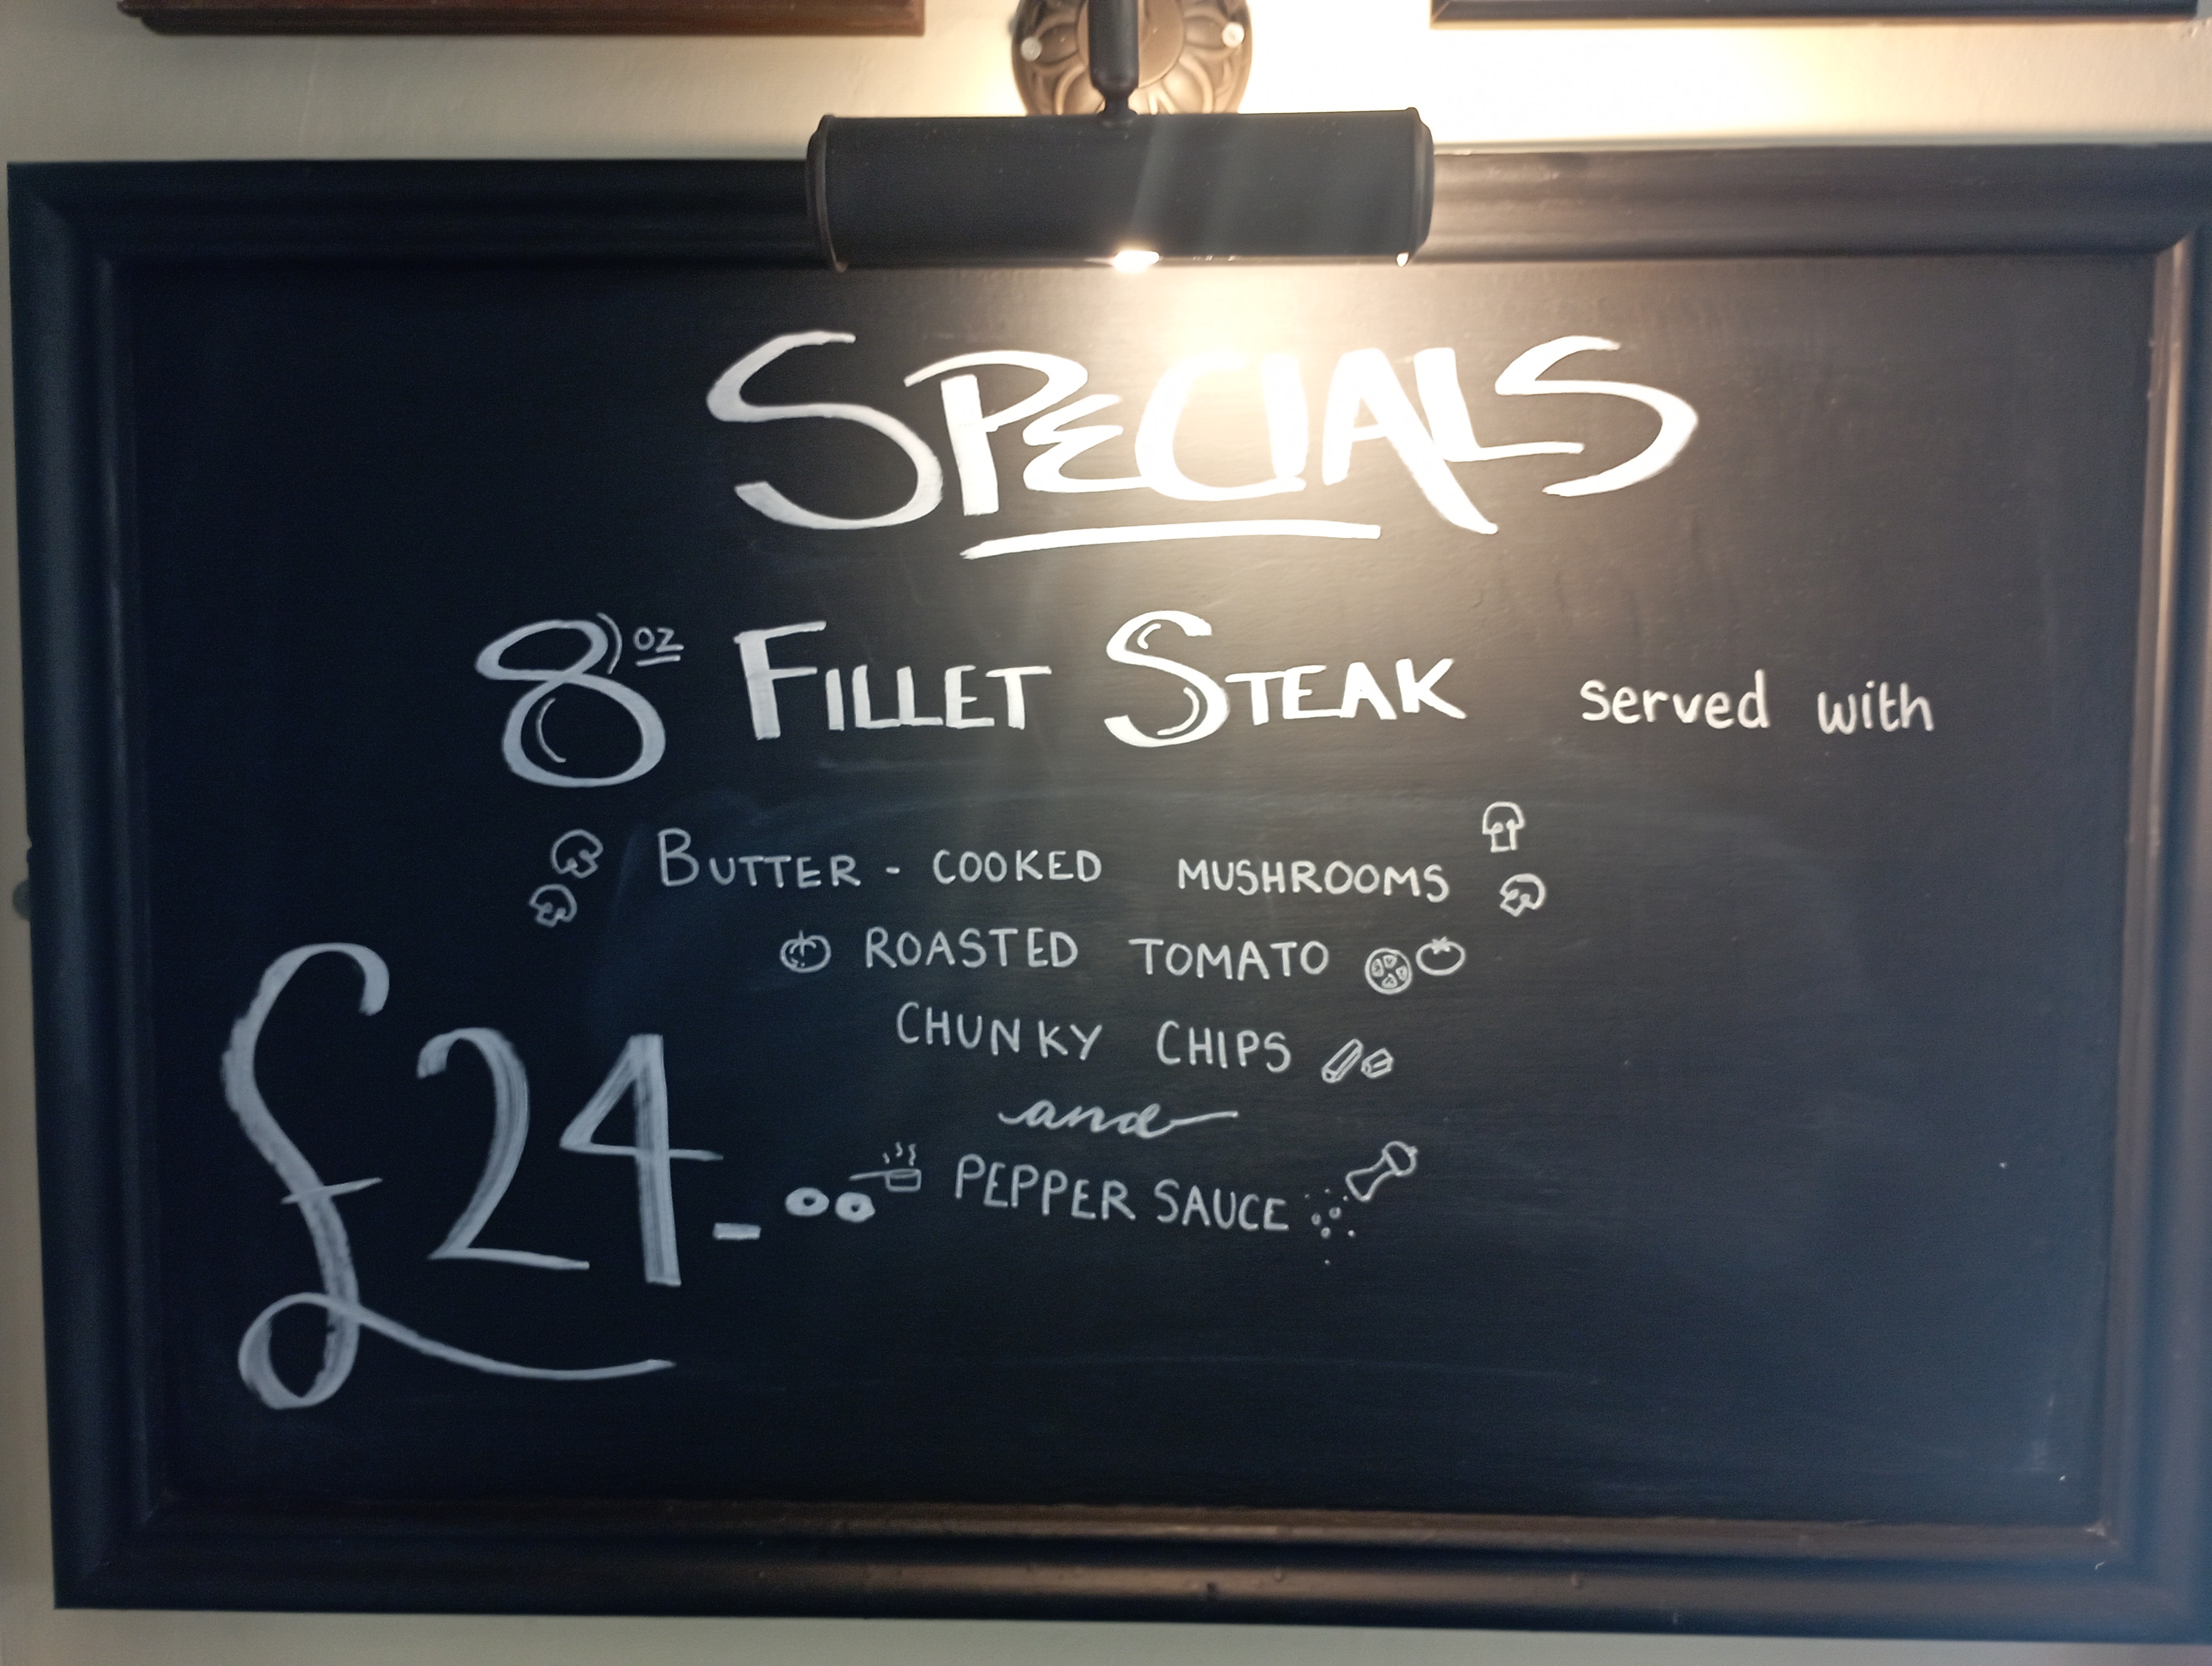 SPECIALS
8oz FILLET STEAK served with
BUTTER - COOKED MUSHROOMS
ROASTED TOMATO
CHUNKY CHIPS
and
PEPPER SAUCE
£24-00